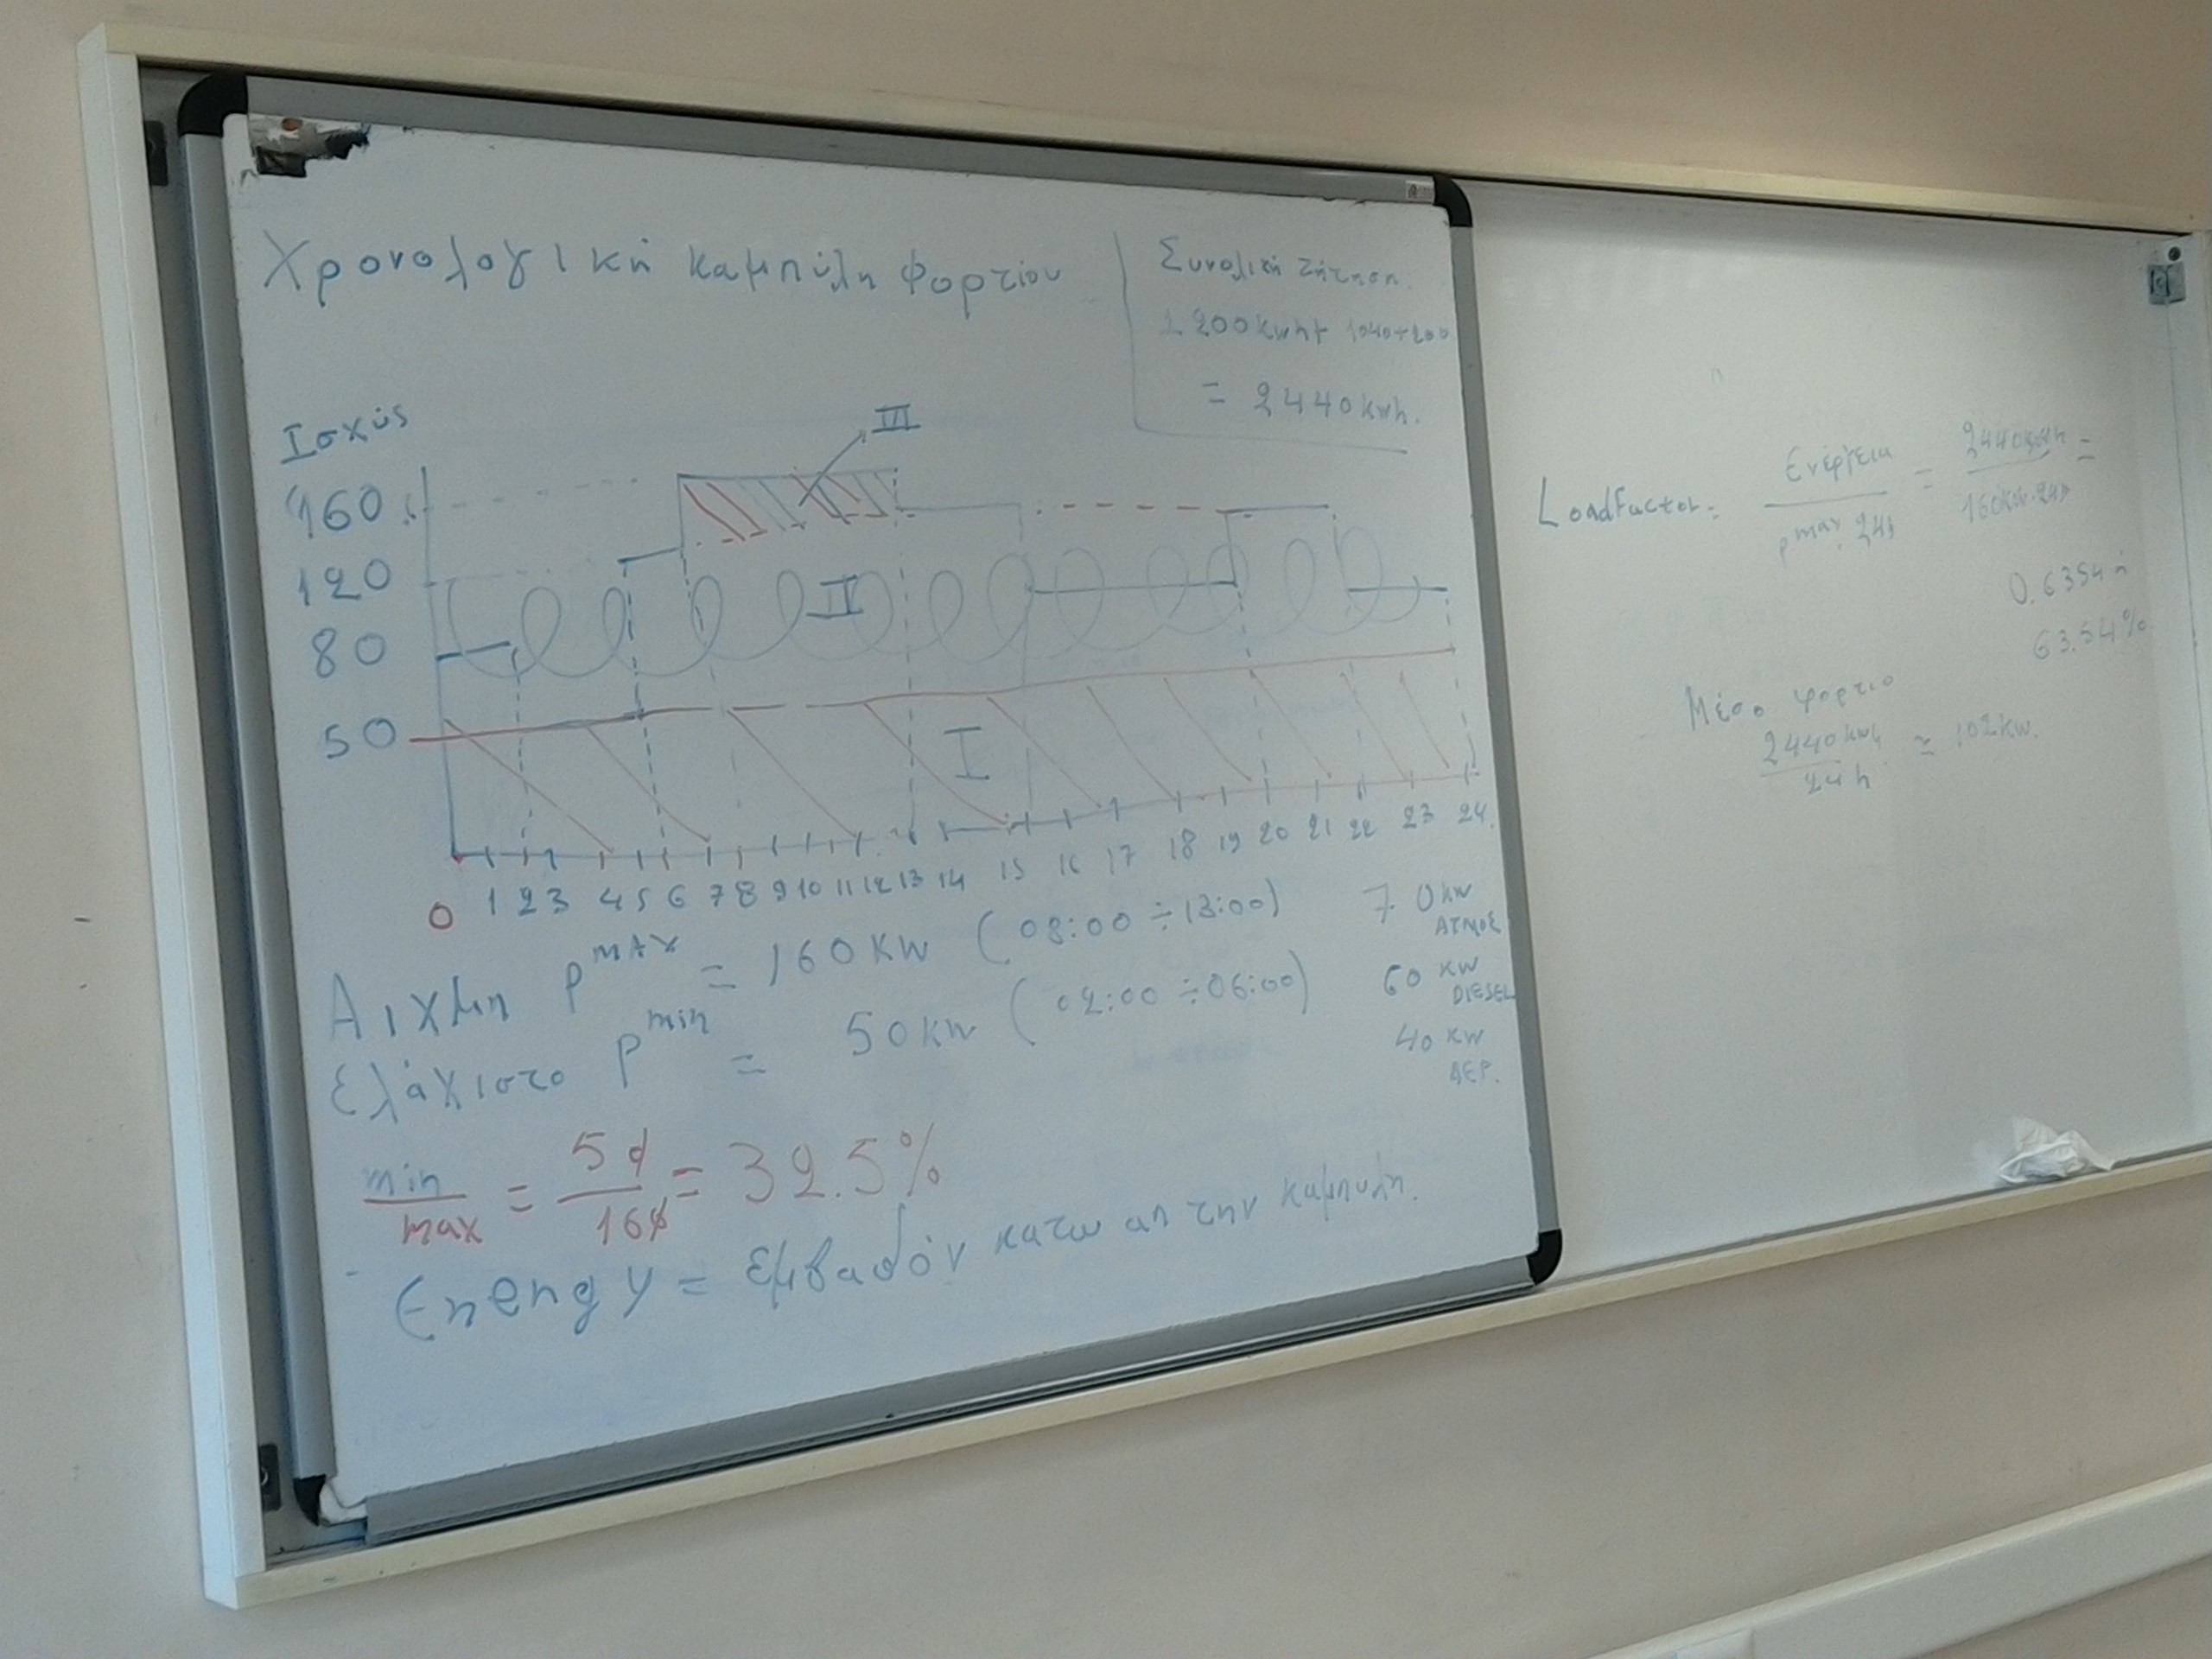 Χρονολογική καμπύλη φορτίου
Συνολική ζήτηση.
1200kwh+ 1040+200
= 2440kwh.
Ισχύς
III
160
120
II
80
50
I
0 1 2 3 4 5 6 7 8 9 10 11 12 13 14 15 16 17 18 19 20 21 22 23 24.
Αιχμη P max = 160 KW (08:00 ÷ 13:00)
ελάχιστο P min = 50 KW (02:00 ÷ 06:00)
70 KW
ΑΤΜΟΣ
60 KW
DIESEL
40 KW
ΑΕΡ.
min/max = 50/160 = 32.5%
Energy = εμβαδόν κατω απ την καμπυλη.
LoadFactor = Ενέργεια / P max . 24h = 2440kwh / 160kw.24h =
0.6354 ή
63.54%
Μέσο φορτιο
2440 kwh / 24 h ≃ 102kw.